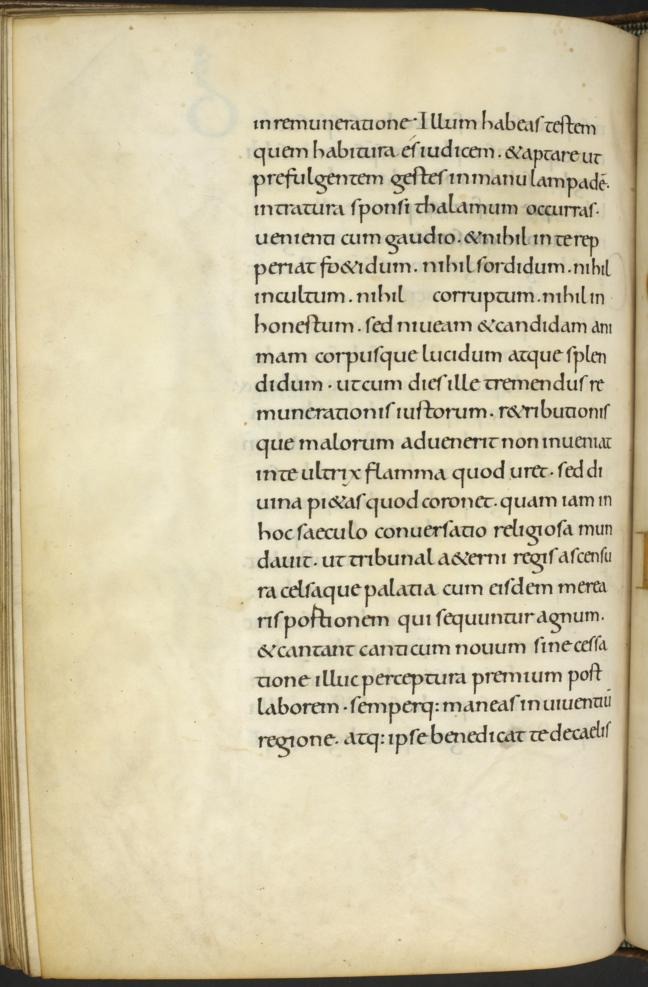 in remuneratione· Illum habeas testem
quem habitura és iudicem. & aptare ut
prefulgentem gestes in manu lampadē.
intratura sponsi thalamum occurras.
uenienti cum gaudio. & nihil in te rep
periat fo&idum. nihil sordidum. nihil
incultum. nihil corruptum. nihil in
honestum. sed niueam & candidam ani
mam corpusque lucidum atque splen
didum. ut cum dies ille tremendus re
munerationis iustorum. r&ributionis
que malorum aduenerit non inueniat
in te ultrix flamma quod uret. sed di
uina pi&as quod coronet. quam iam in
hoc saeculo conuersatio religiosa mun
dauit. ut tribunal a&erni regis ascensu
ra celsaque palatia cum eisdem merea
ris postionem qui sequuntur agnum.
& cantant canticum nouum sine cessa
tione illuc perceptura premium post
laborem. semperq: maneas in uiuentiū
regione. atq: ipse benedicat te de caelis